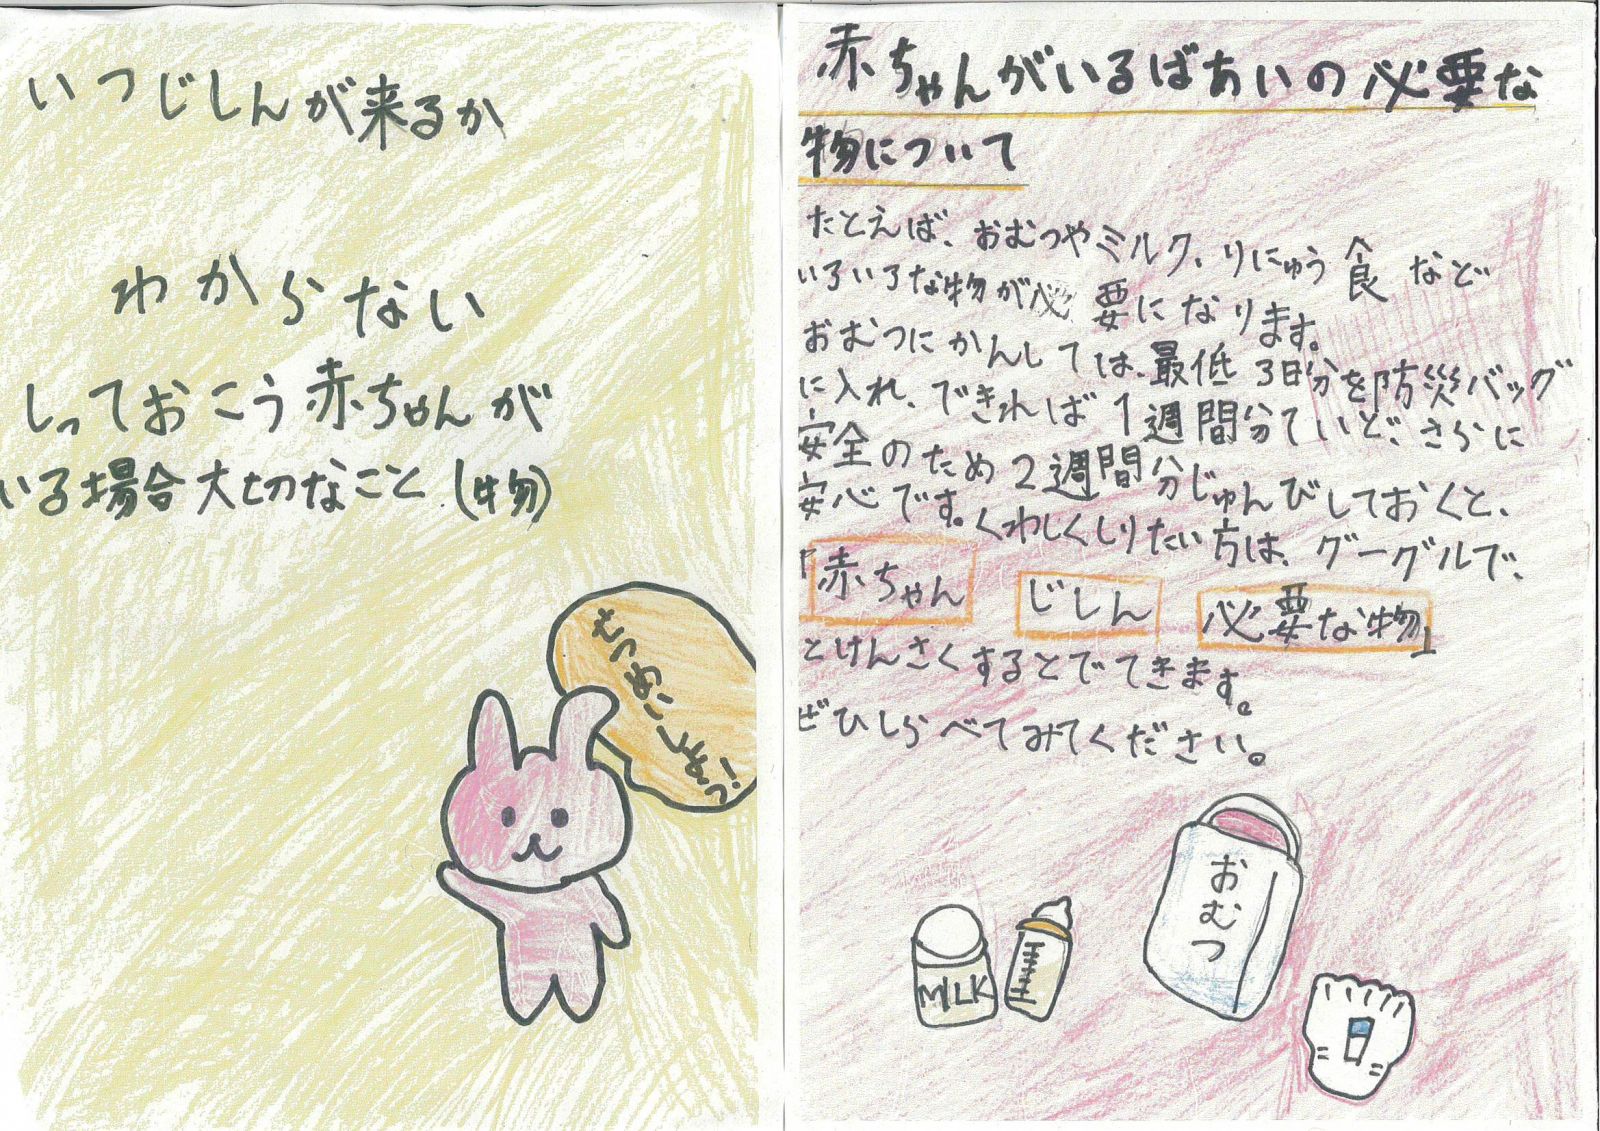 いつじしんが来るか
わからない
しっておこう赤ちゃんが
いる場合大切なこと(物)
赤ちゃんがいるばあいの必要な
物について
たとえば、おむつやミルク、りにゅう食など
いろいろな物が必要になります。
おむつにかんしては、最低3日分を防災バッグ
に入れ、できれば1週間分ていど、さらに
安全のため2週間分じゅんびしておくと、
安心です。くわしくしりたい方は、グーグルで、
「赤ちゃん じしん 必要な物」
とけんさくするとでてきます。
ぜひしらべてみてください。
おむつ
MILK